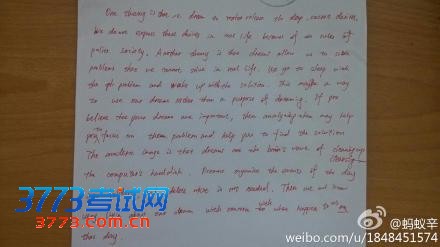 One theory is that we dream to
We dream express these desires in real life because of the rules of
polite society. Another theory is that dreams allow us to solve
problems that we cannot solve in real life. We go to sleep with
the problem and wake up with the solution. This maybe a way
to use our dreams rather than a purpose of dreaming. If you
believe that your dreams are important, then analysing them may help
you to focus on them problem and help you to find the solution
The modern image is that dreams are the brain's means of cleaning up
the computer's hard disk. Dreams organise the events of the day
what is not needed. Then we
our dream with to what happens to us on
that day.
3773考试网
www.3773.com.cn
@蚂蚁辛
weibo.com/u/1848451574